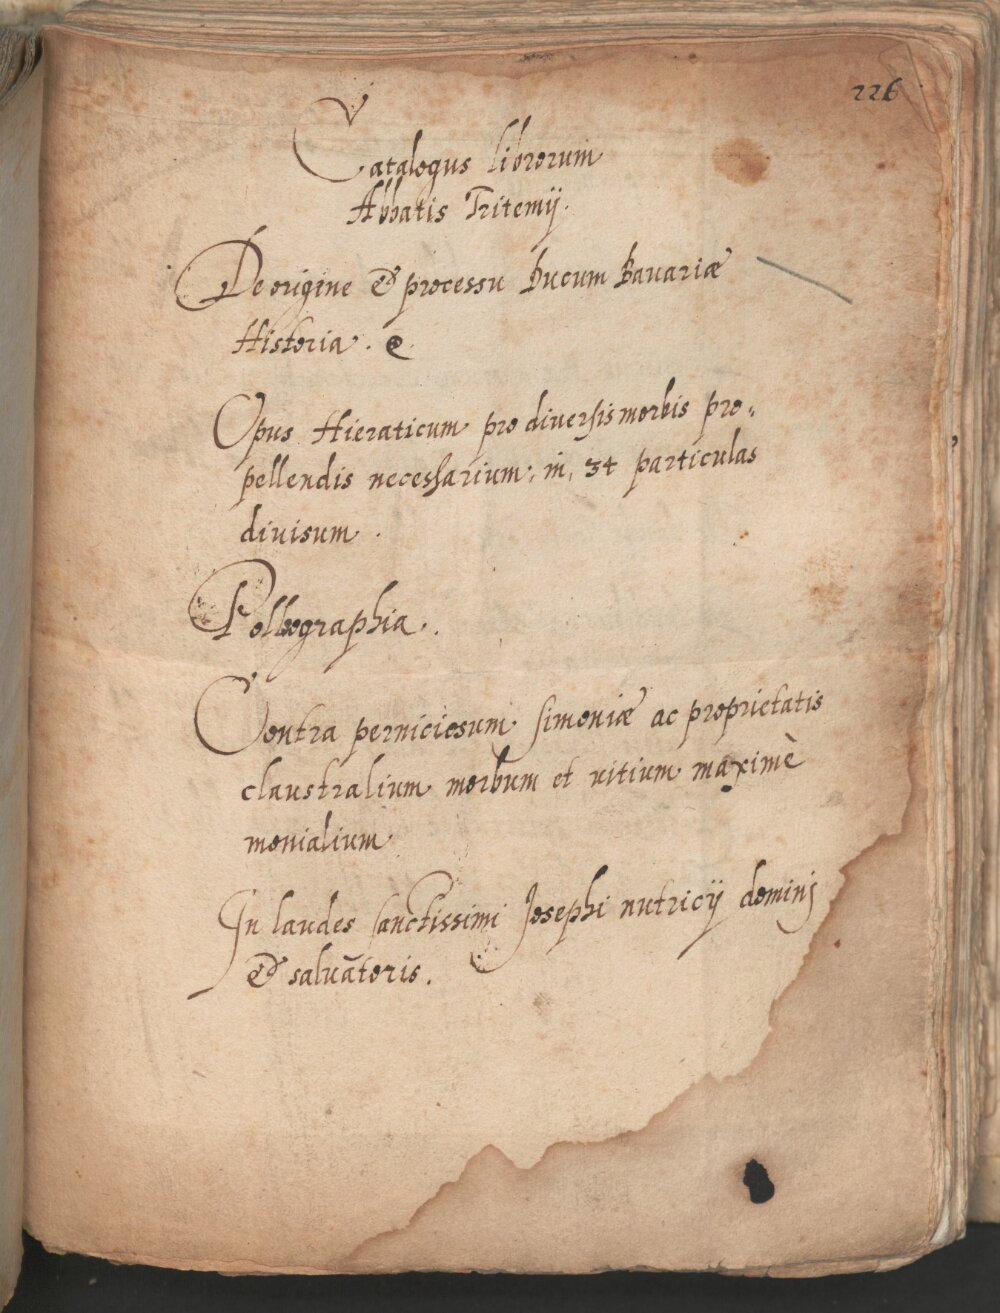 226
Catalogus librorum
Abbatis Tritemij.
De origine & processu Ducum Bavariæ
Historia. e
Opus Hieraticum pro diuersis morbis pro„
pellendis necessarium; in, 34 particulas
diuisum.
Poligraphia.
Contra perniciosum simoniæ ac proprietatis
claustralium morbum et uitium maximè
monialium
In laudes sanctissimi Josephi nutricij dominj
& saluātoris.